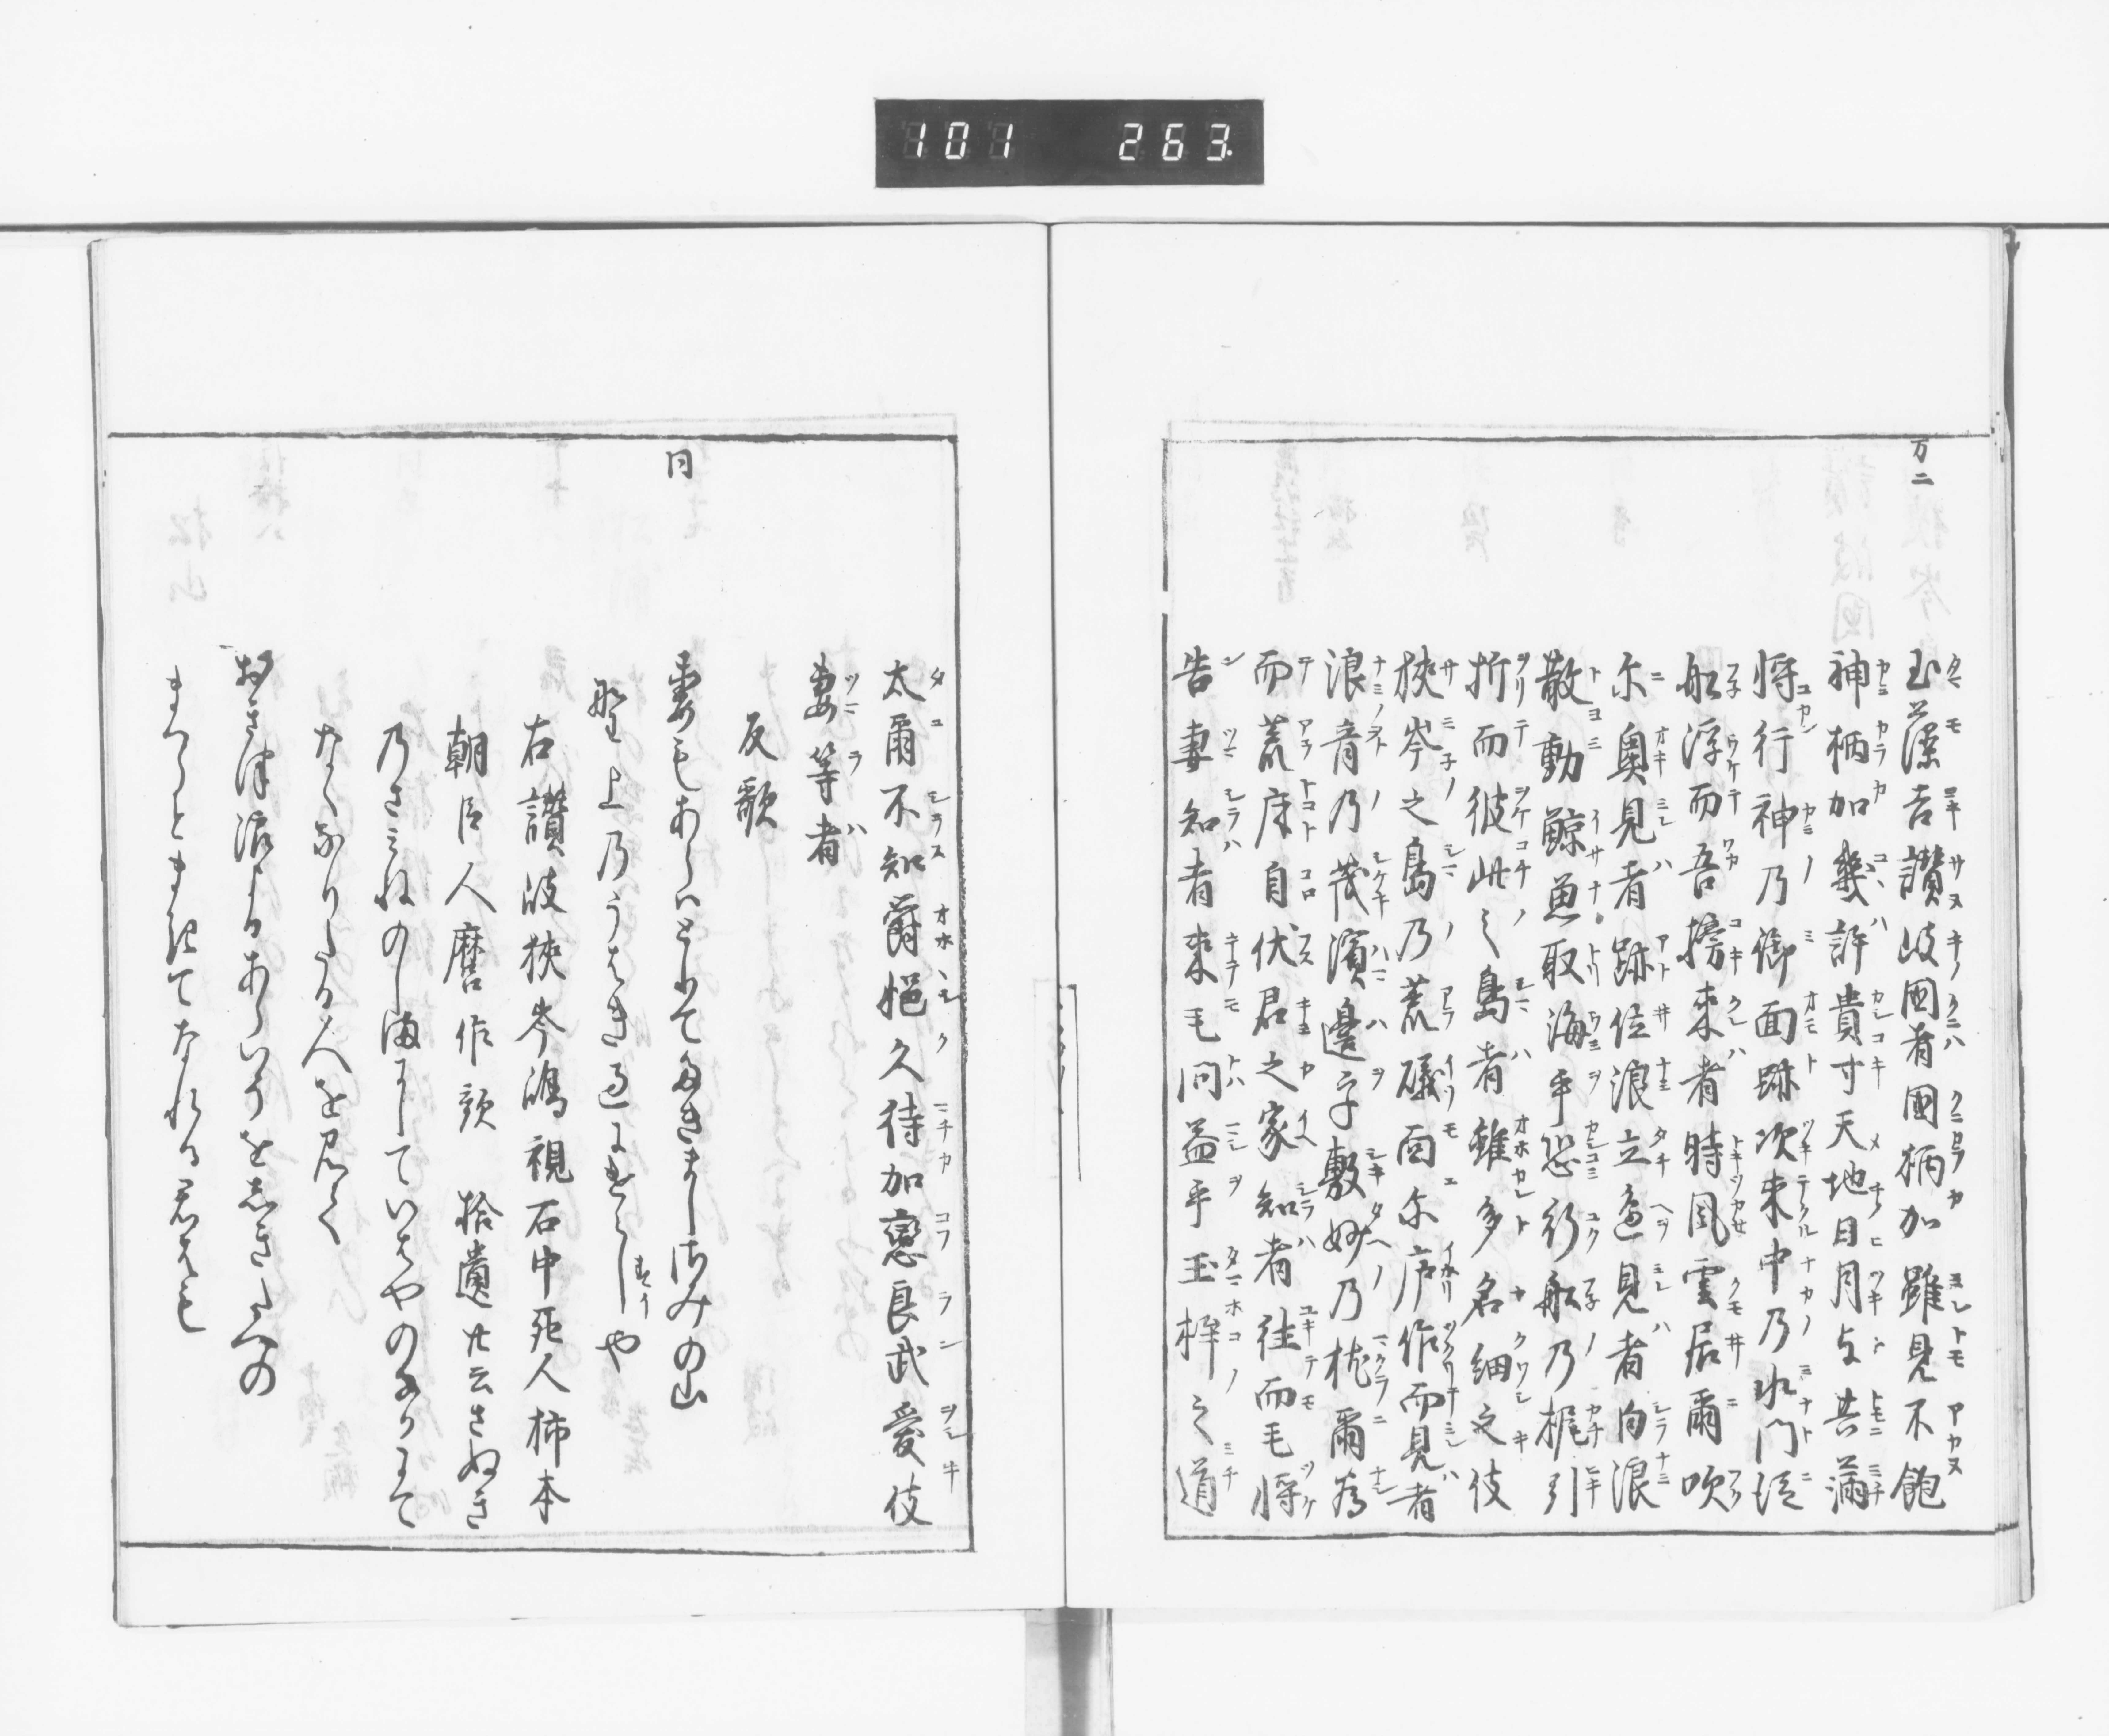 101 263
万二
玉藻吉讃岐國者國柄加雖見不飽
神柄加幾許貴寸天地日月与共満
将行神乃御面跡次来中乃水門従
船浮而吾搒来者時風雲居爾吹
尓奥見者跡位浪立邊見者白浪
散動鯨魚取海乎恐行船乃梶引
折而彼此之島者雖多名細之伎
狭岑之島乃荒礒面尓廬作而見者
浪音乃茂濱邊乎敷妙乃枕爾為
而荒床自伏君之家知者往而毛将
告妻知者来毛問益乎玉桙之道
太爾不知欝悒久待加戀良武愛伎
妻等者
反歌
同
妻もあらはとりてたきましさみの山
野上乃うはき過にけらしや
右讃波狭岑嶋視石中死人柿本
朝臣人麿作歌 拾遺廿云さぬき
乃さみねのしまにしていはやの中にて
なくなりたる人を見て
おきつ浪よるあらいそをしきたへの
まくらとまきてなれる君かも